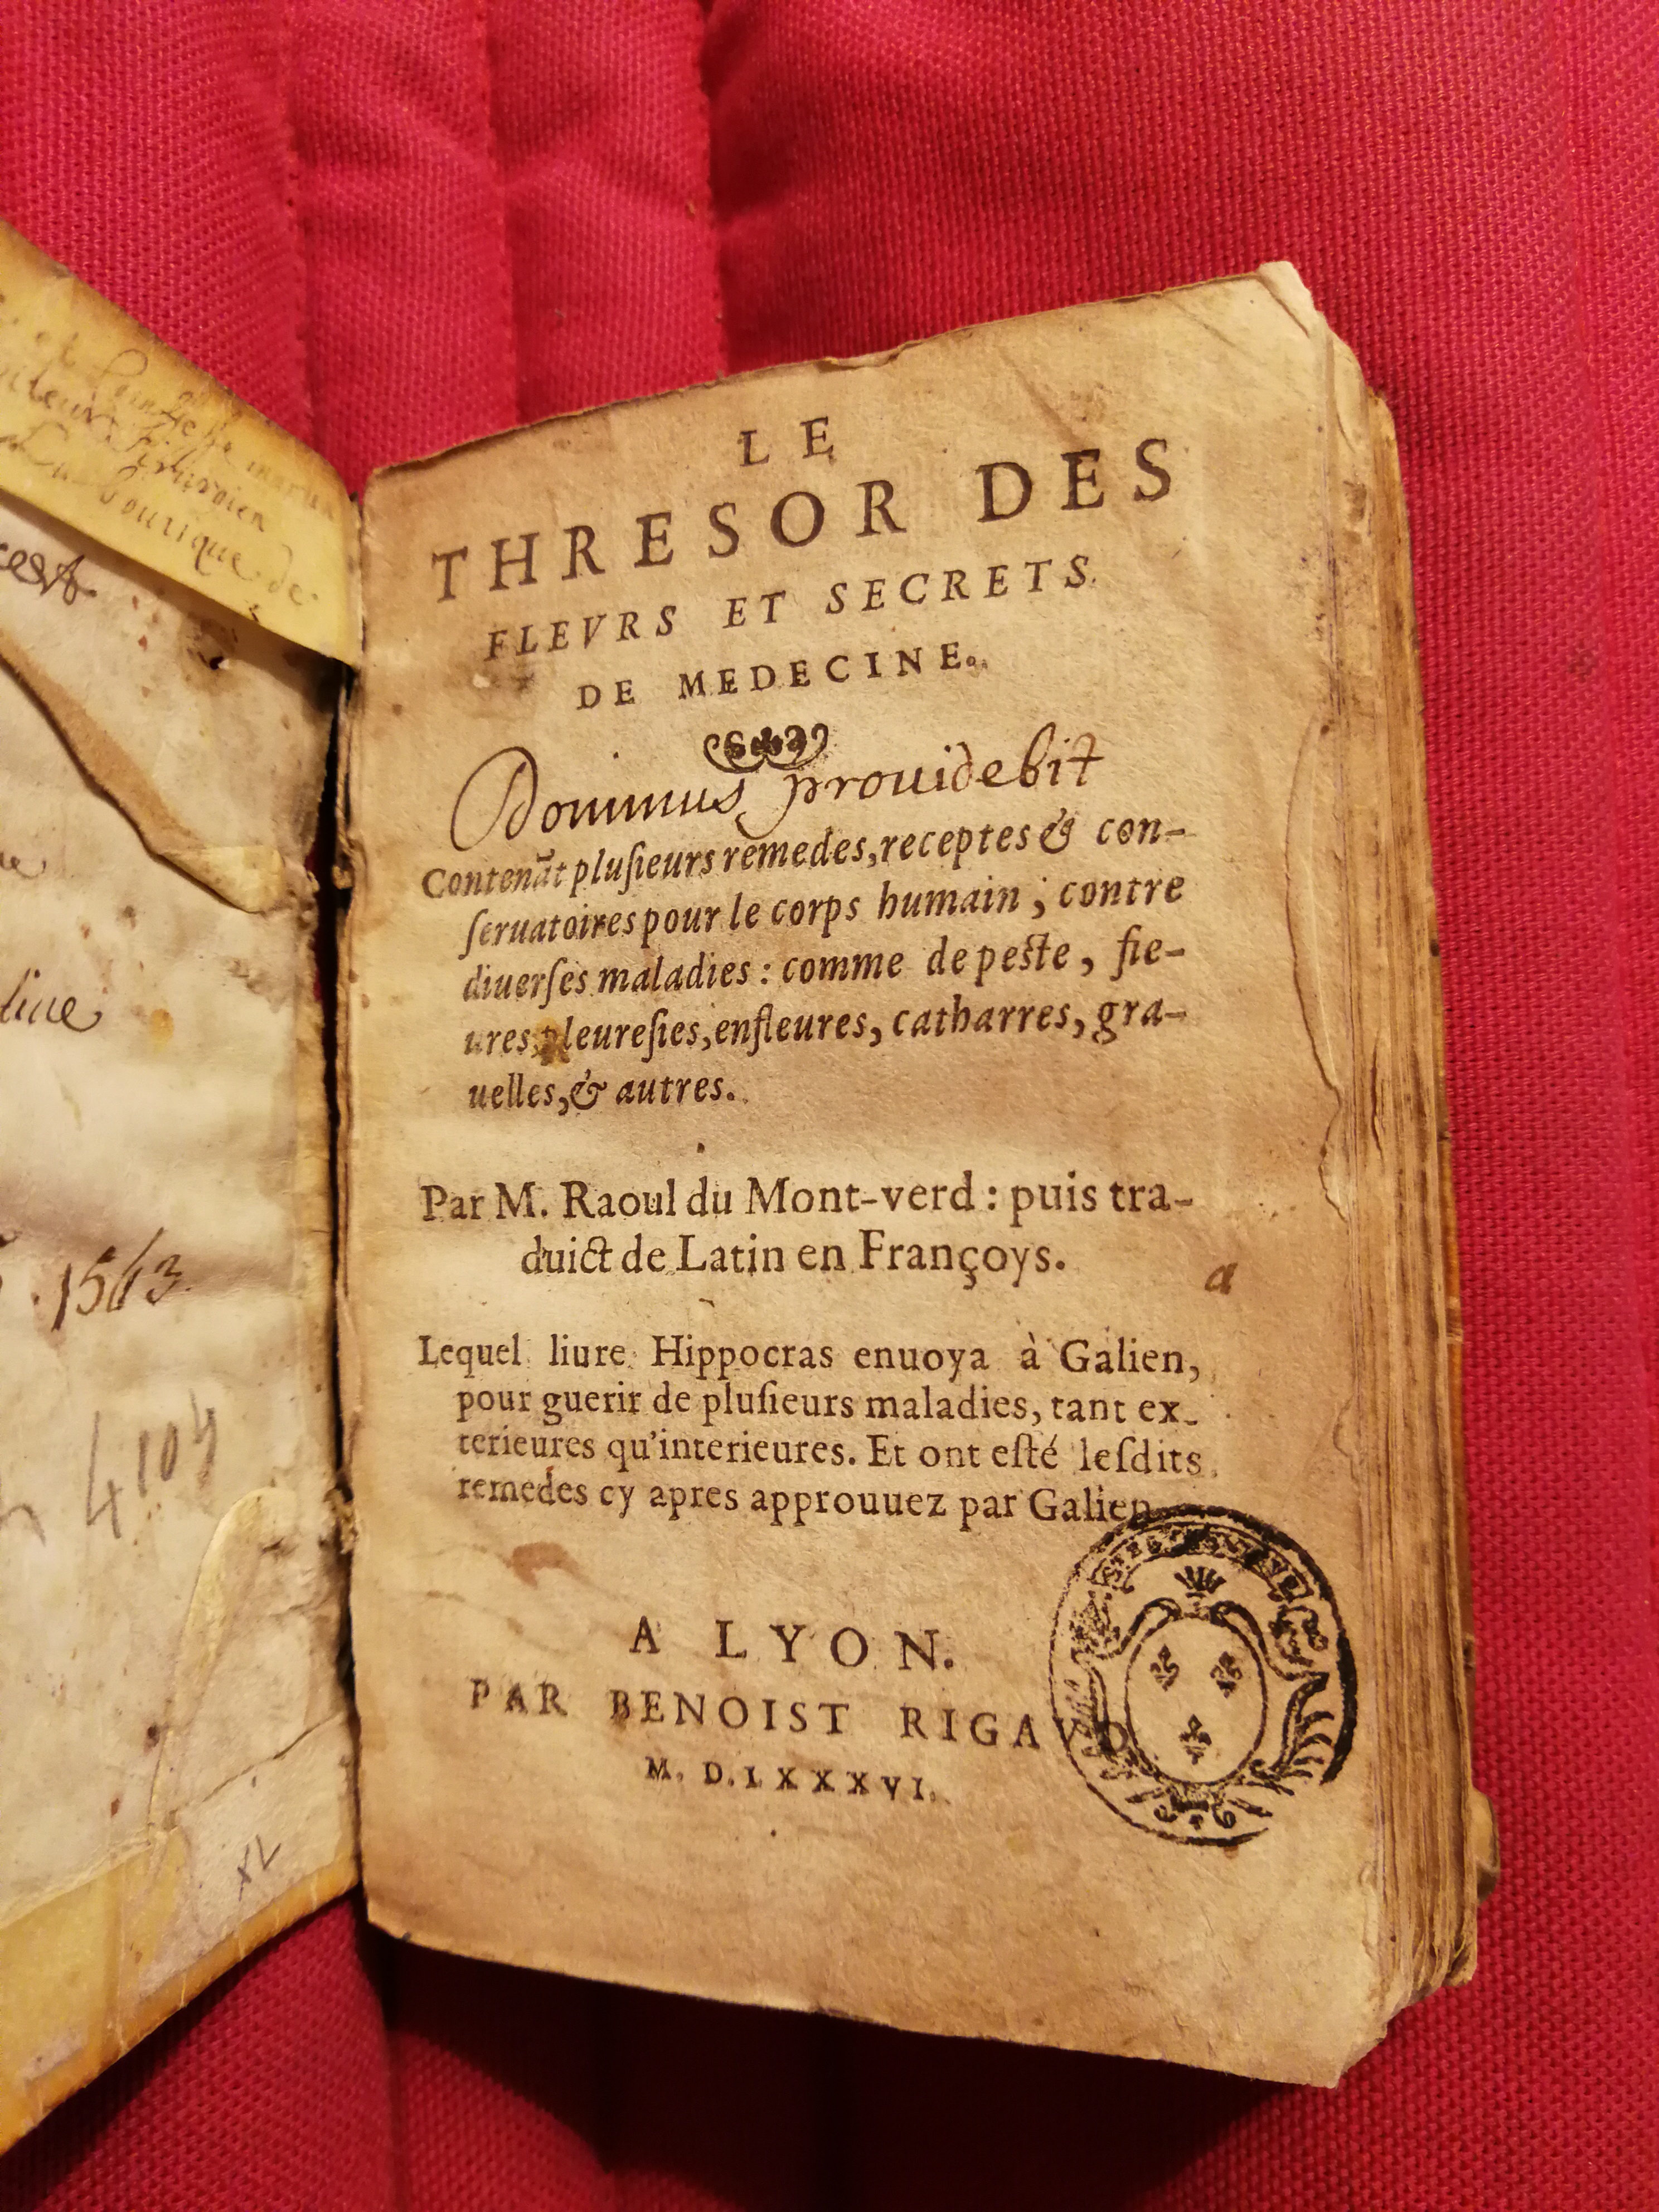 chirurgien
bourique de
1563
4109
XL
LE
THRESOR DES
FLEVRS ET SECRETS
DE MEDECINE.
Dominus prouidebit
Contenāt pluſieurs remedes, receptes & con-
ſeruatoires pour le corps humain ; contre
diuerſes maladies : comme de peſte, fie-
ures, pleureſies, enfleures, catharres, gra-
uelles, & autres.
Par M. Raoul du Mont-verd : puis tra-
duict de Latin en Françoys.
a
Lequel liure Hippocras enuoya à Galien,
pour guerir de pluſieurs maladies, tant ex-
terieures qu'interieures. Et ont eſté leſdits
remedes cy apres approuuez par Galien
A LYON.
PAR BENOIST RIGAVD
M. D. LXXXVI.